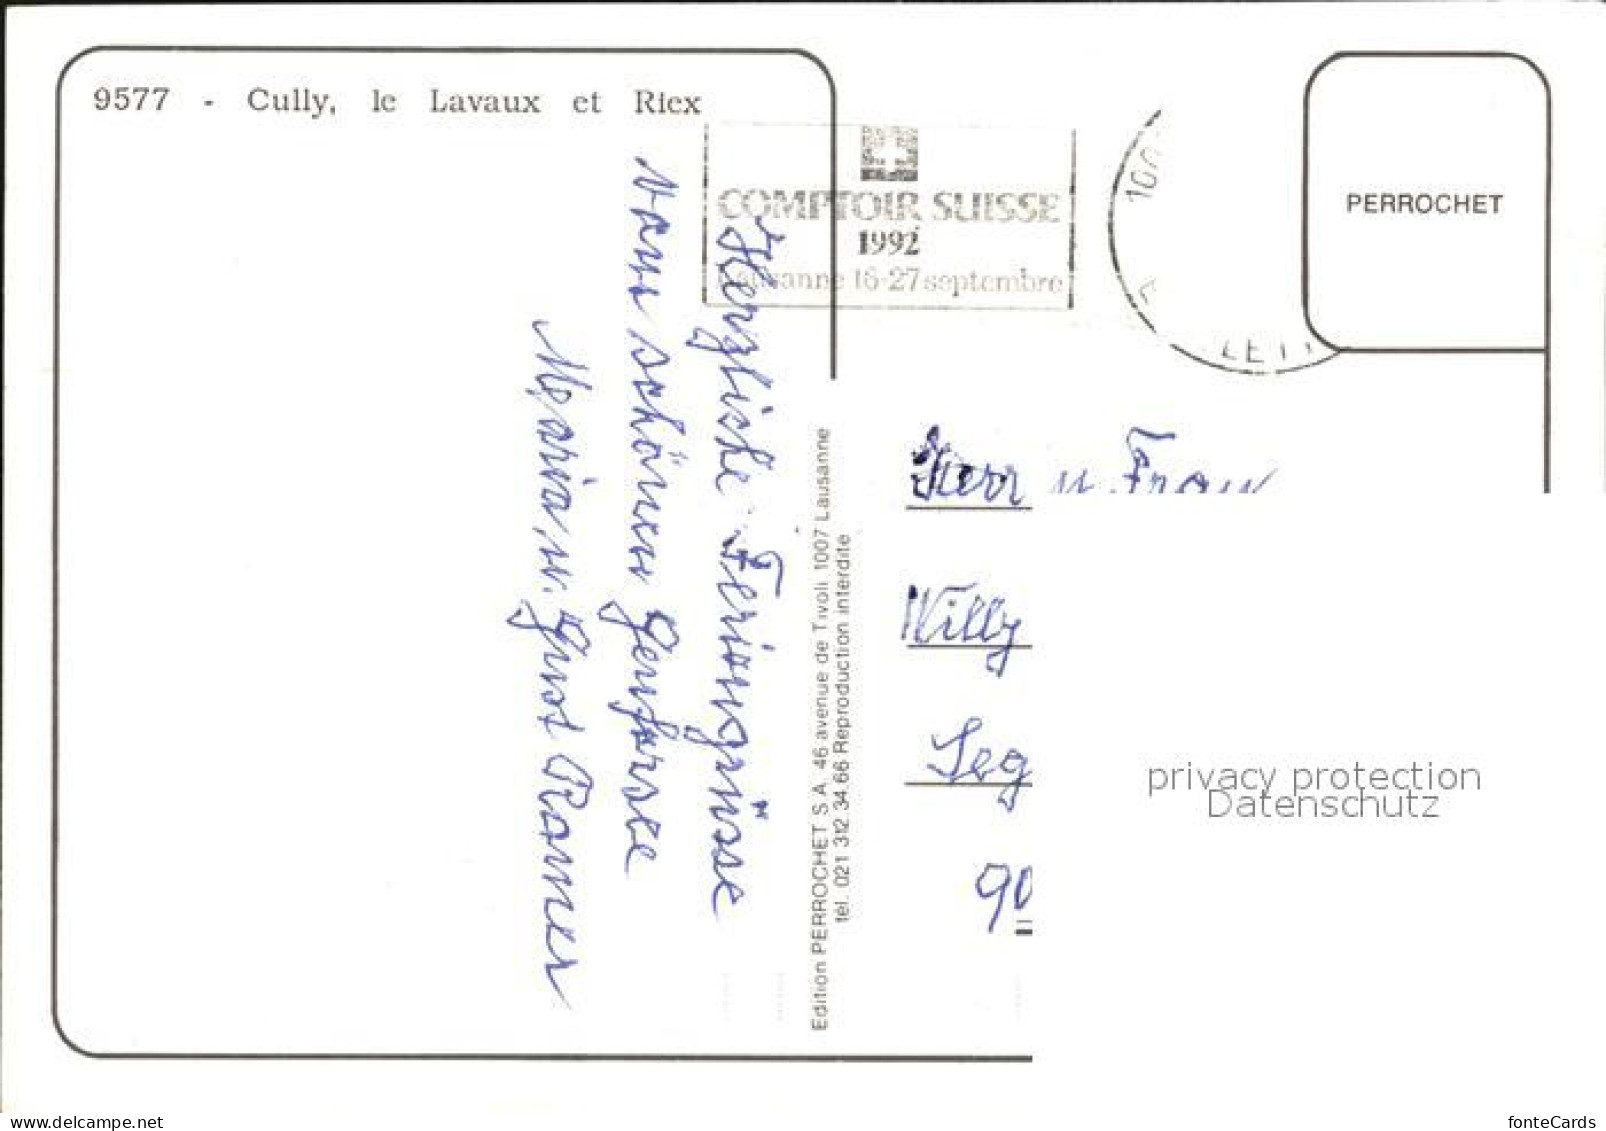 9577 - Cully, le Lavaux et Riex
COMPTOIR SUISSE
1992
Lausanne 16-27 septembre
PERROCHET
Herzliche Feriengrüsse
vom schönen Genfersee
Maria u. Gust Ramer
Edition PERROCHET S.A. 46 avenue de Tivoli 1007 Lausanne
tél. 021 312.34.66 Reproduction interdite
Herr u. Frau
Willy
Seg
90
privacy protection
Datenschutz
www.delcampe.net
fonteCards